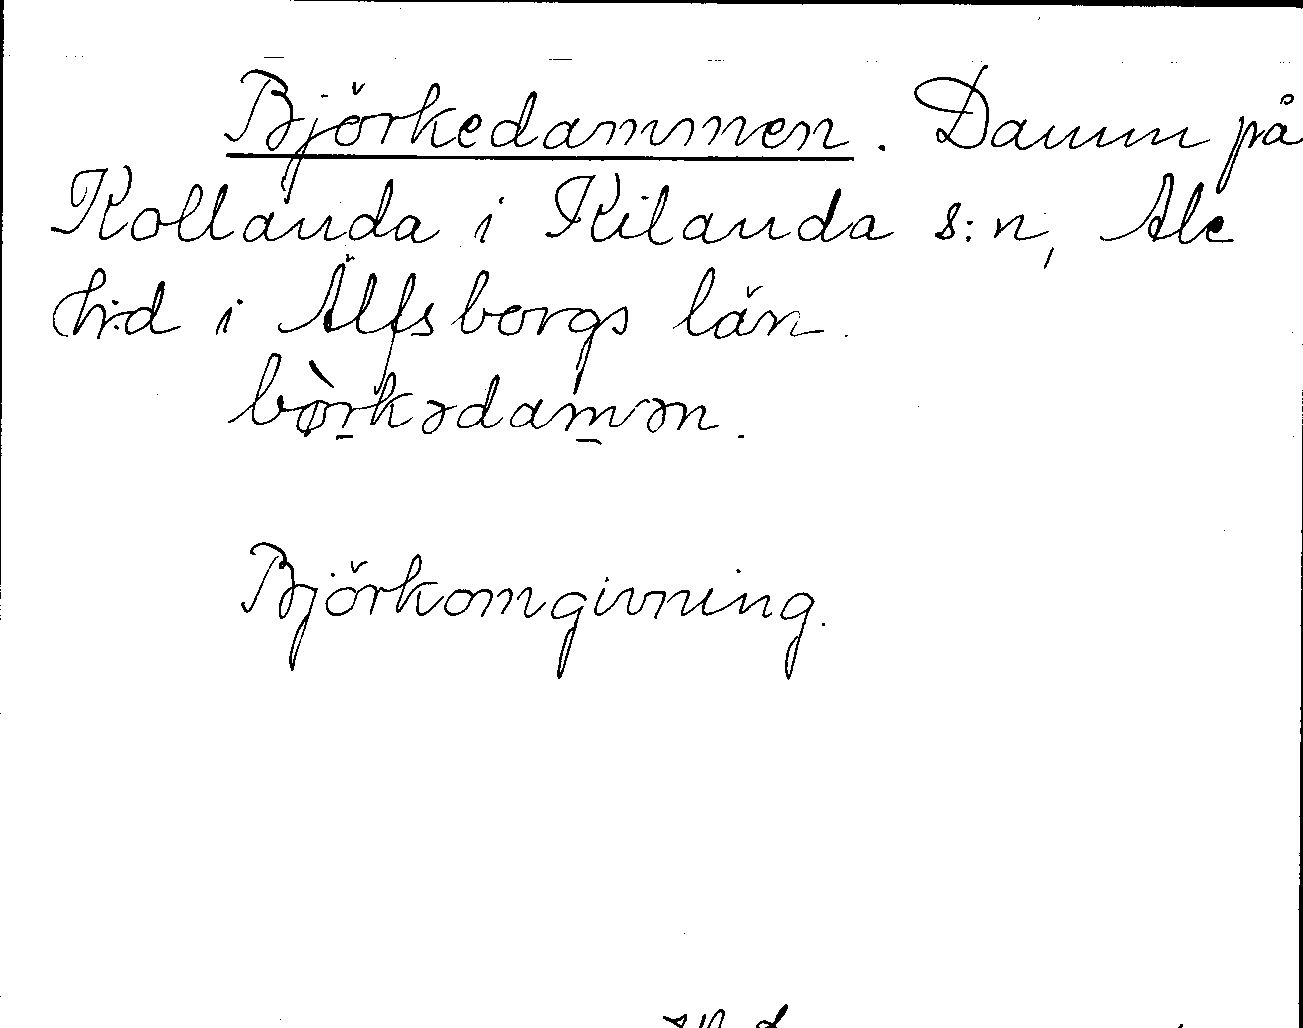 Björkedammen. Damm på
Kollanda i Kilanda s:n, Ale
h:d i Älfsborgs län.
bø̀rkədamən.
Björkomgivning.